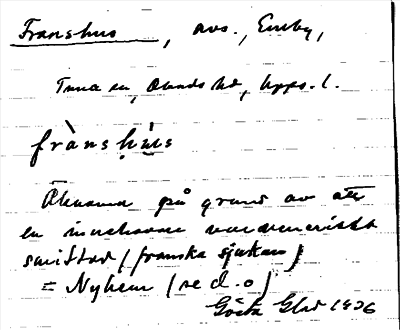 Franshus, avs., Emby,
Tuna sn, Olands hd, Upps. l.
frànshùs
Öknamn på grund av att
en innehavare var veneriskt
smittad (franska sjukan)
= Nyhem (se d. o)
Gösta 1936